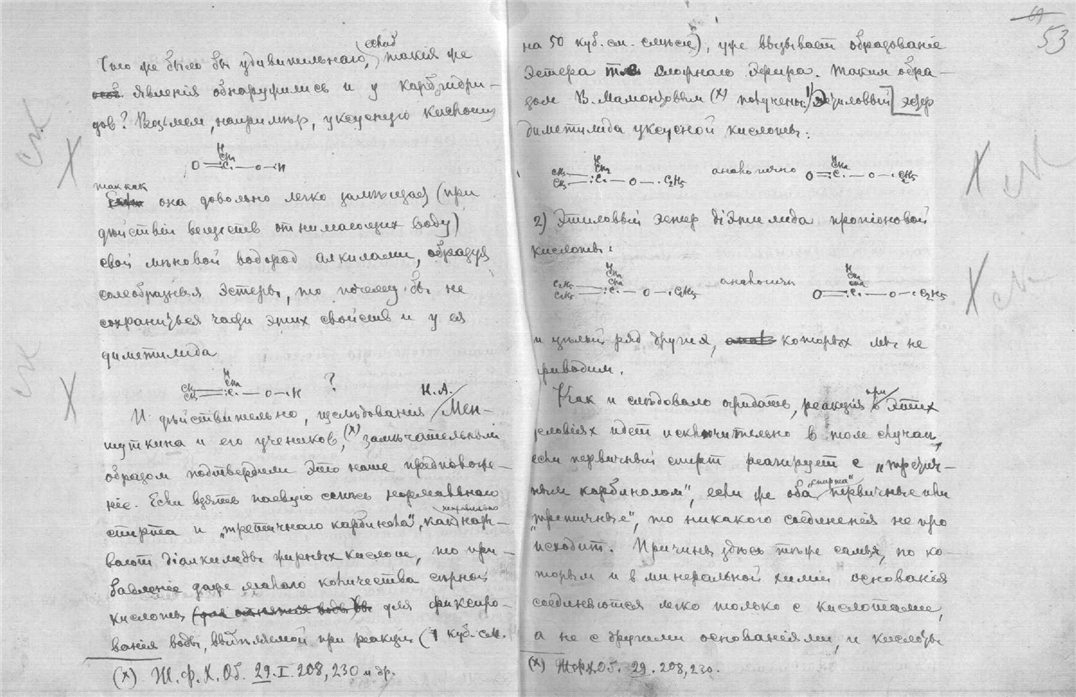 Чего же было бы удивительнаго, если такія же
явленія обнаружились и у карбгидри-
дов? Возьмем, например, уксусную кислоту
O = C – O – H
так как
она довольно легко замещает (при
действіи веществ отнимающих воду)
свой мновой водород алкилами, образуя
солеобразные эстеры, то почему бы не
сохраниться части этих свойств и у ея
диметилида
C – O – H ?
И действительно, изследованія Н.А. Мен-
шуткина и его учеников, (х) замечательным
образом подтвердили это наше предположе-
ніе. Если взять паевую смесь нормальнаго
спирта и „третичнаго карбинола", как назы-
вают діалкилиды жирных кислот, то при-
бавленіе даже малаго количества серной
кислоты для фиксиро-
ванія воды, выделяемой при реакціи (1 куб. см.
(х) Ж.Ф.Х.Об. 29.I.208,230 и др.
53
на 50 куб. см. смеси), уже вызывает образованіе
эстера т.е. сложнаго эфира. Таким обра-
зом В. Мамонтовым (х) получены: 1) Этиловый эстер
диметилида уксусной кислоты:
C – O – C2H5 аналогично O = C – O – C2H5
2) Этиловый эстер діэтилида пропіоновой
кислоты:
C2H5 C – O – C2H5 аналогичн O = C – O – C2H5
и целый ряд других, которых мы не
приводим.
Как и следовало ожидать, реакція при этих
условіях идет исключительно в том случае,
если первичный спирт реагирует с „третич-
ным карбинолом", если же оба „спирта" первичные или
„третичные", то никакого соединенія не про-
исходит. Причины здесь те же самыя, по ко-
торым и в минеральной химіи основанія
соединяются легко только с кислотами,
а не с другими основаніями, и кислоты
(х) Ж.Ф.Х.Об. 29. 208,230.